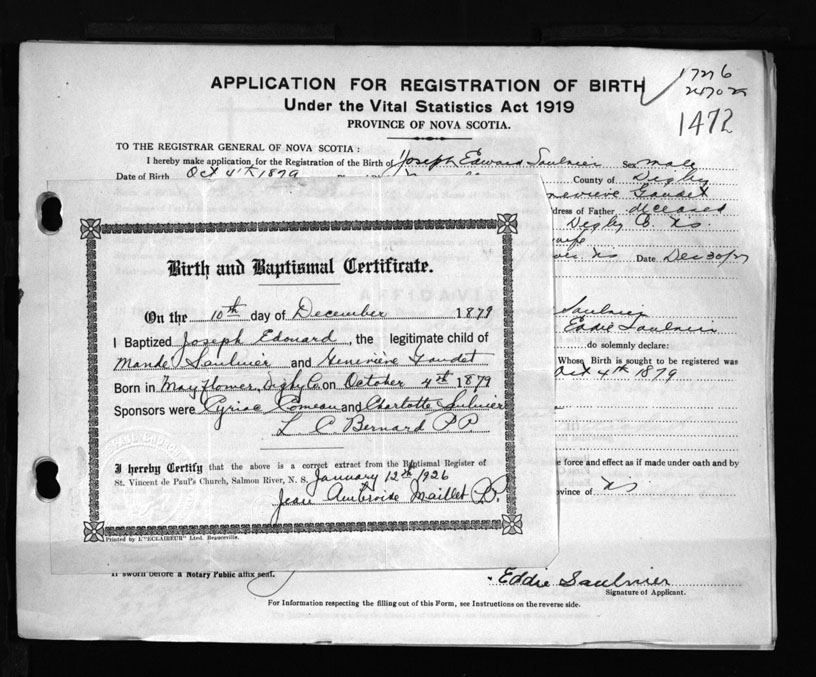 APPLICATION FOR REGISTRATION OF BIRTH
1472
Under the Vital Statistics Act 1919
PROVINCE OF NOVA SCOTIA.
TO THE REGISTRAR GENERAL OF NOVA SCOTIA :
I hereby make application for the Registration of the Birth of Joseph Edward Saulnier Sex male
Date of Birth Oct 4th 1879 County of Digby
Gaudet
dress of Father deceased
Digby Co. Ns.
Ns Date Dec 30/27
Saulnier
Eddie Saulnier
do solemnly declare:
Whose Birth is sought to be registered was
Oct 4th 1879
e force and effect as if made under oath and by
vince of Ns
Birth and Baptismal Certificate.
On the 10th day of December 1879
I Baptized Joseph Edouard, the legitimate child of
Mande Saulnier and Geneviève Gaudet
Born in Mayflower, Digby Co. on October 4th 1879
Sponsors were Cyriac Comeau and Charlotte Saulnier
L C Bernard P.P.
I hereby Certify that the above is a correct extract from the Baptismal Register of
St. Vincent de Paul's Church, Salmon River, N. S. January 12th 1926
Jean Ambroise Maillet P.P.
Printed by L'"ECLAIREUR" Ltd. Beauceville.
If sworn before a Notary Public affix seal.
Eddie Saulnier
Signature of Applicant.
For Information respecting the filling out of this Form, see Instructions on the reverse side.